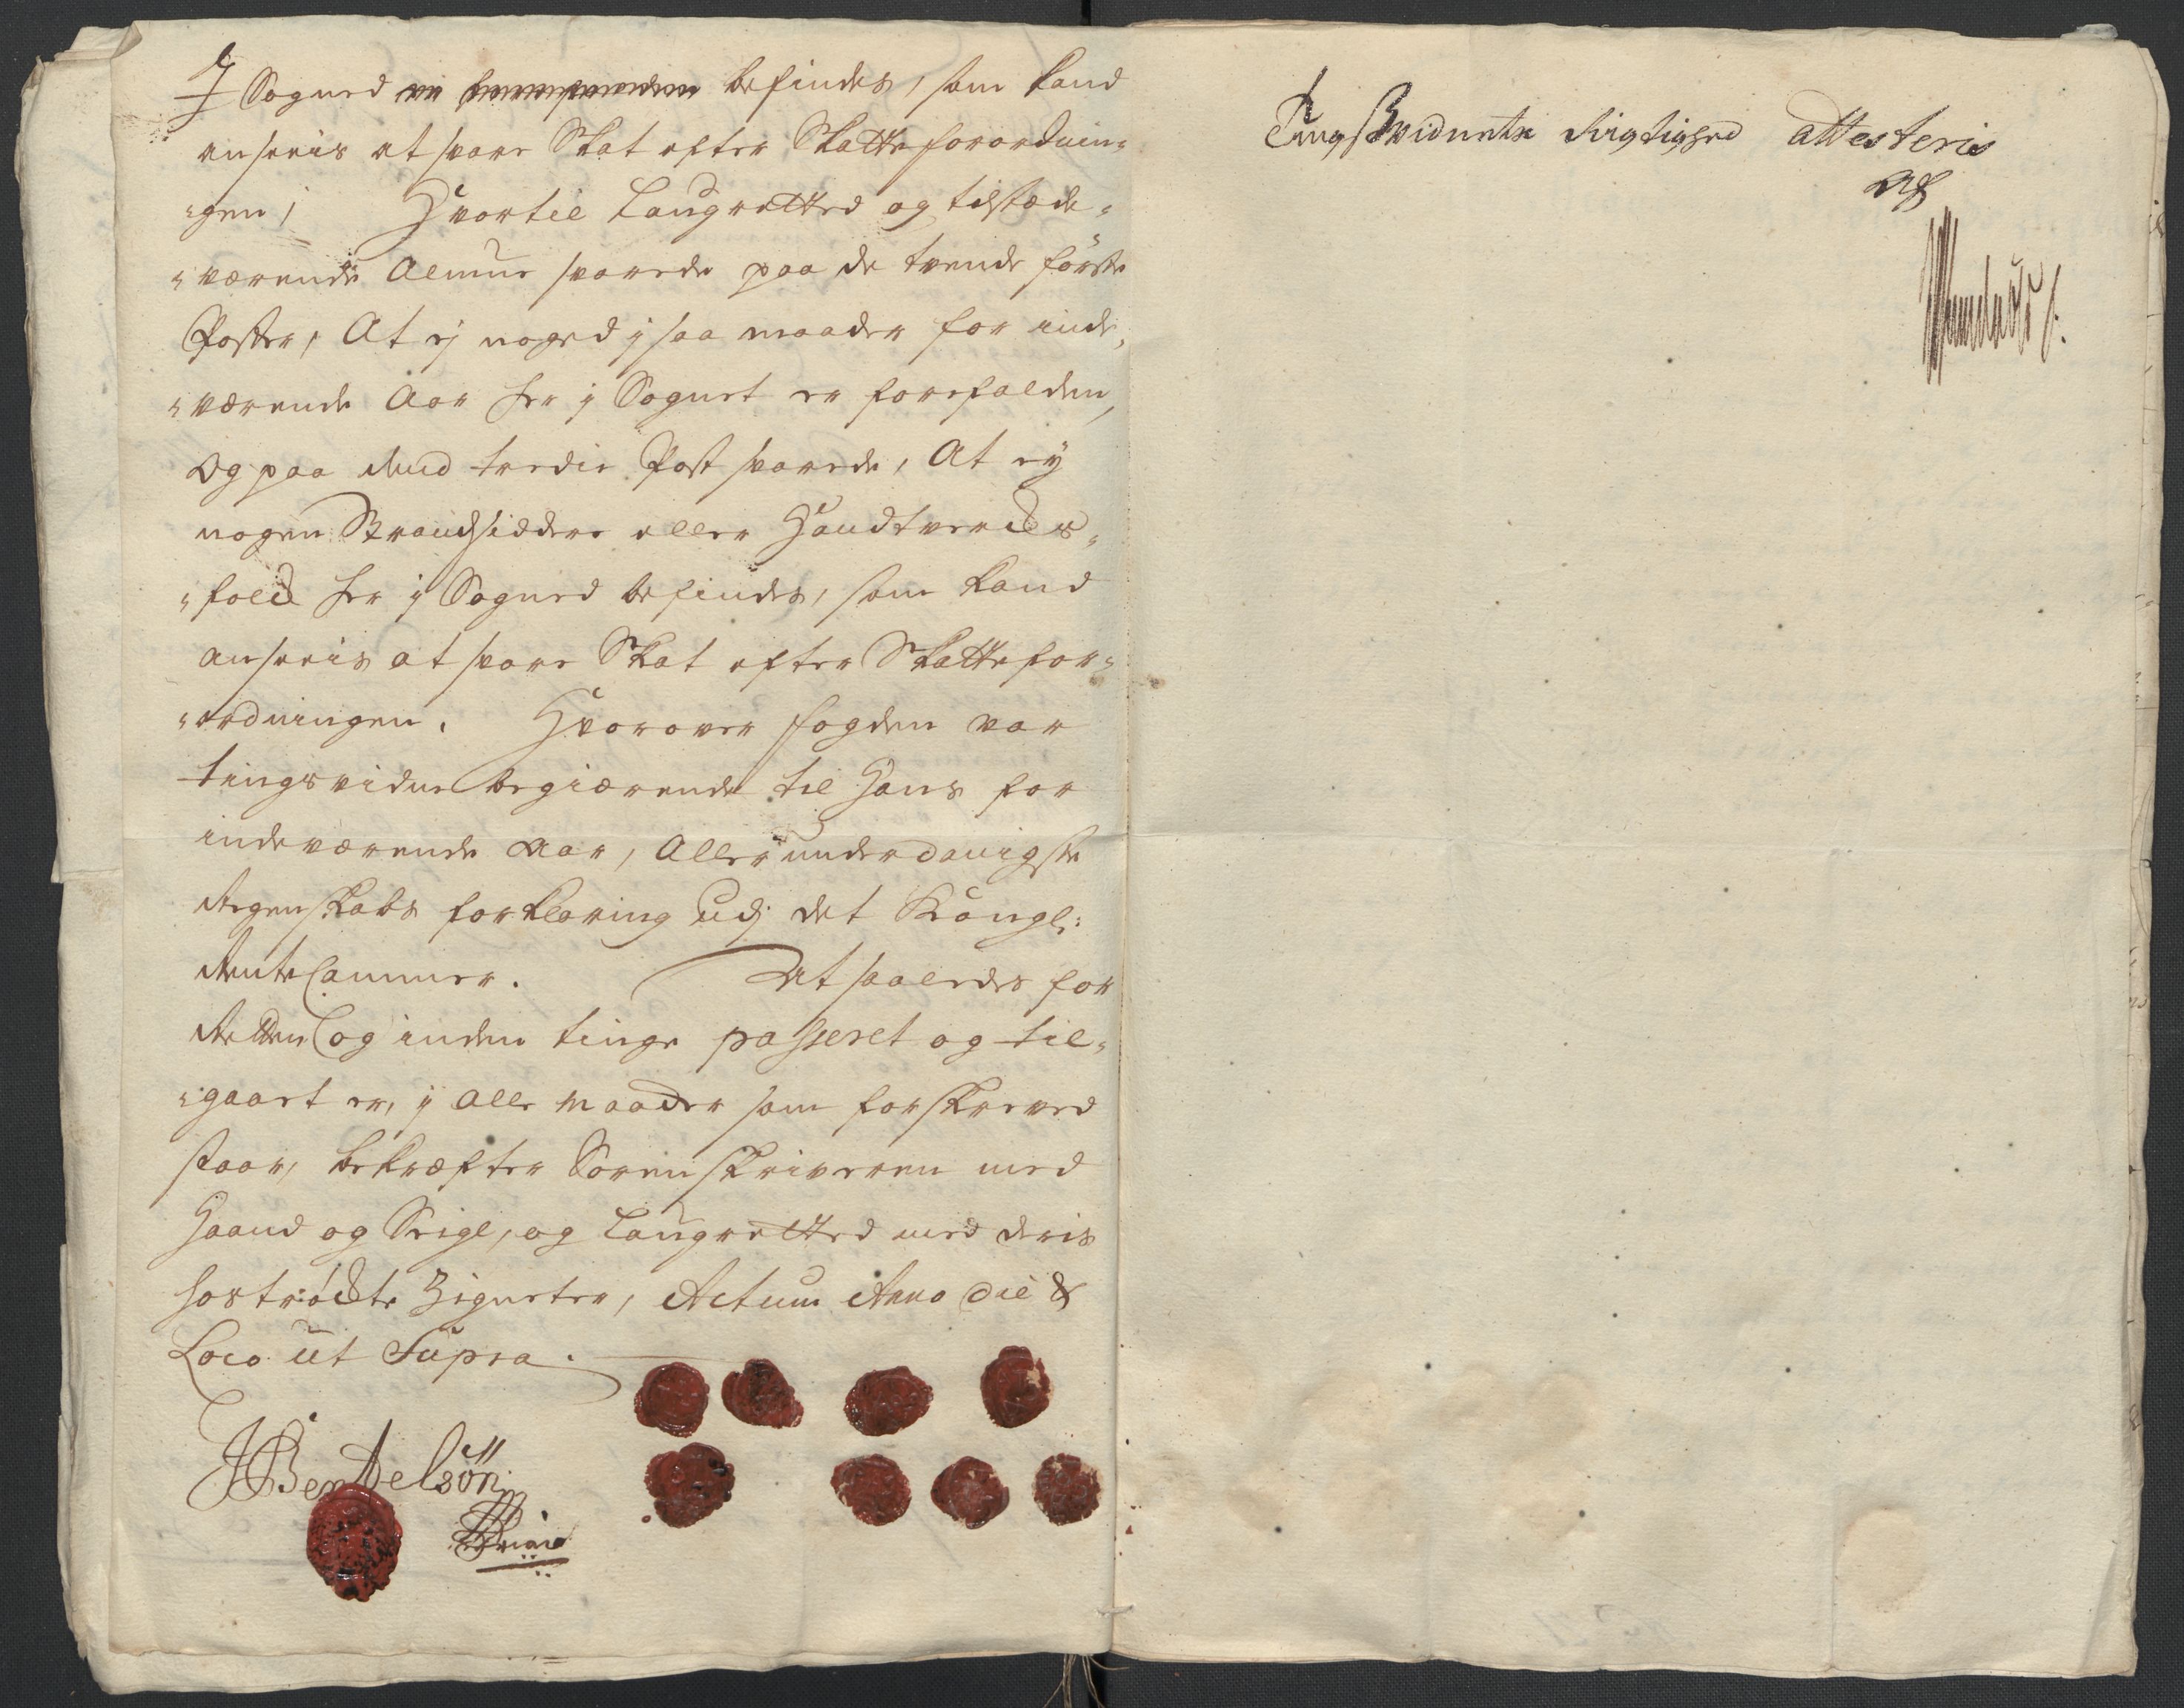 J Sogned befindes, som kand
anseeis at svare Skat efter Skatteforordnin-
-gen, Hvortil Laugretted og tilstæde-
-værende Almue svarede paa de tvende förste
Poster, At ej noged j saa maader for inde-
-værende Aar her j Sognet er forefalden,
og paa dend tredie Post svarede, At ey
nogen Strandsiddere eller Handtvercks-
-folck her j Sogned befindes, som kand
anseeis at svare Skat efter Skattefor-
-ordningen. Hvorover fogden var
tingsvidne begiærende til Hans for
indeværende Aar, Allerunderdanigste
Regenskabs forklaring udj det Kongl:
RenteCammer. At saaledes for
Retten og inden tinge passeret og til-
-gaaet er, j alle maader som forskreved
staar, bekræfter Sorenskriveren med
Haand og Seigl, og Laugretted med deris
hoströckte Zigneter, Actum Anno die &
Loco ut Supra.
JBentelsön
Tings Widnetz Rigtighed attesteris
af